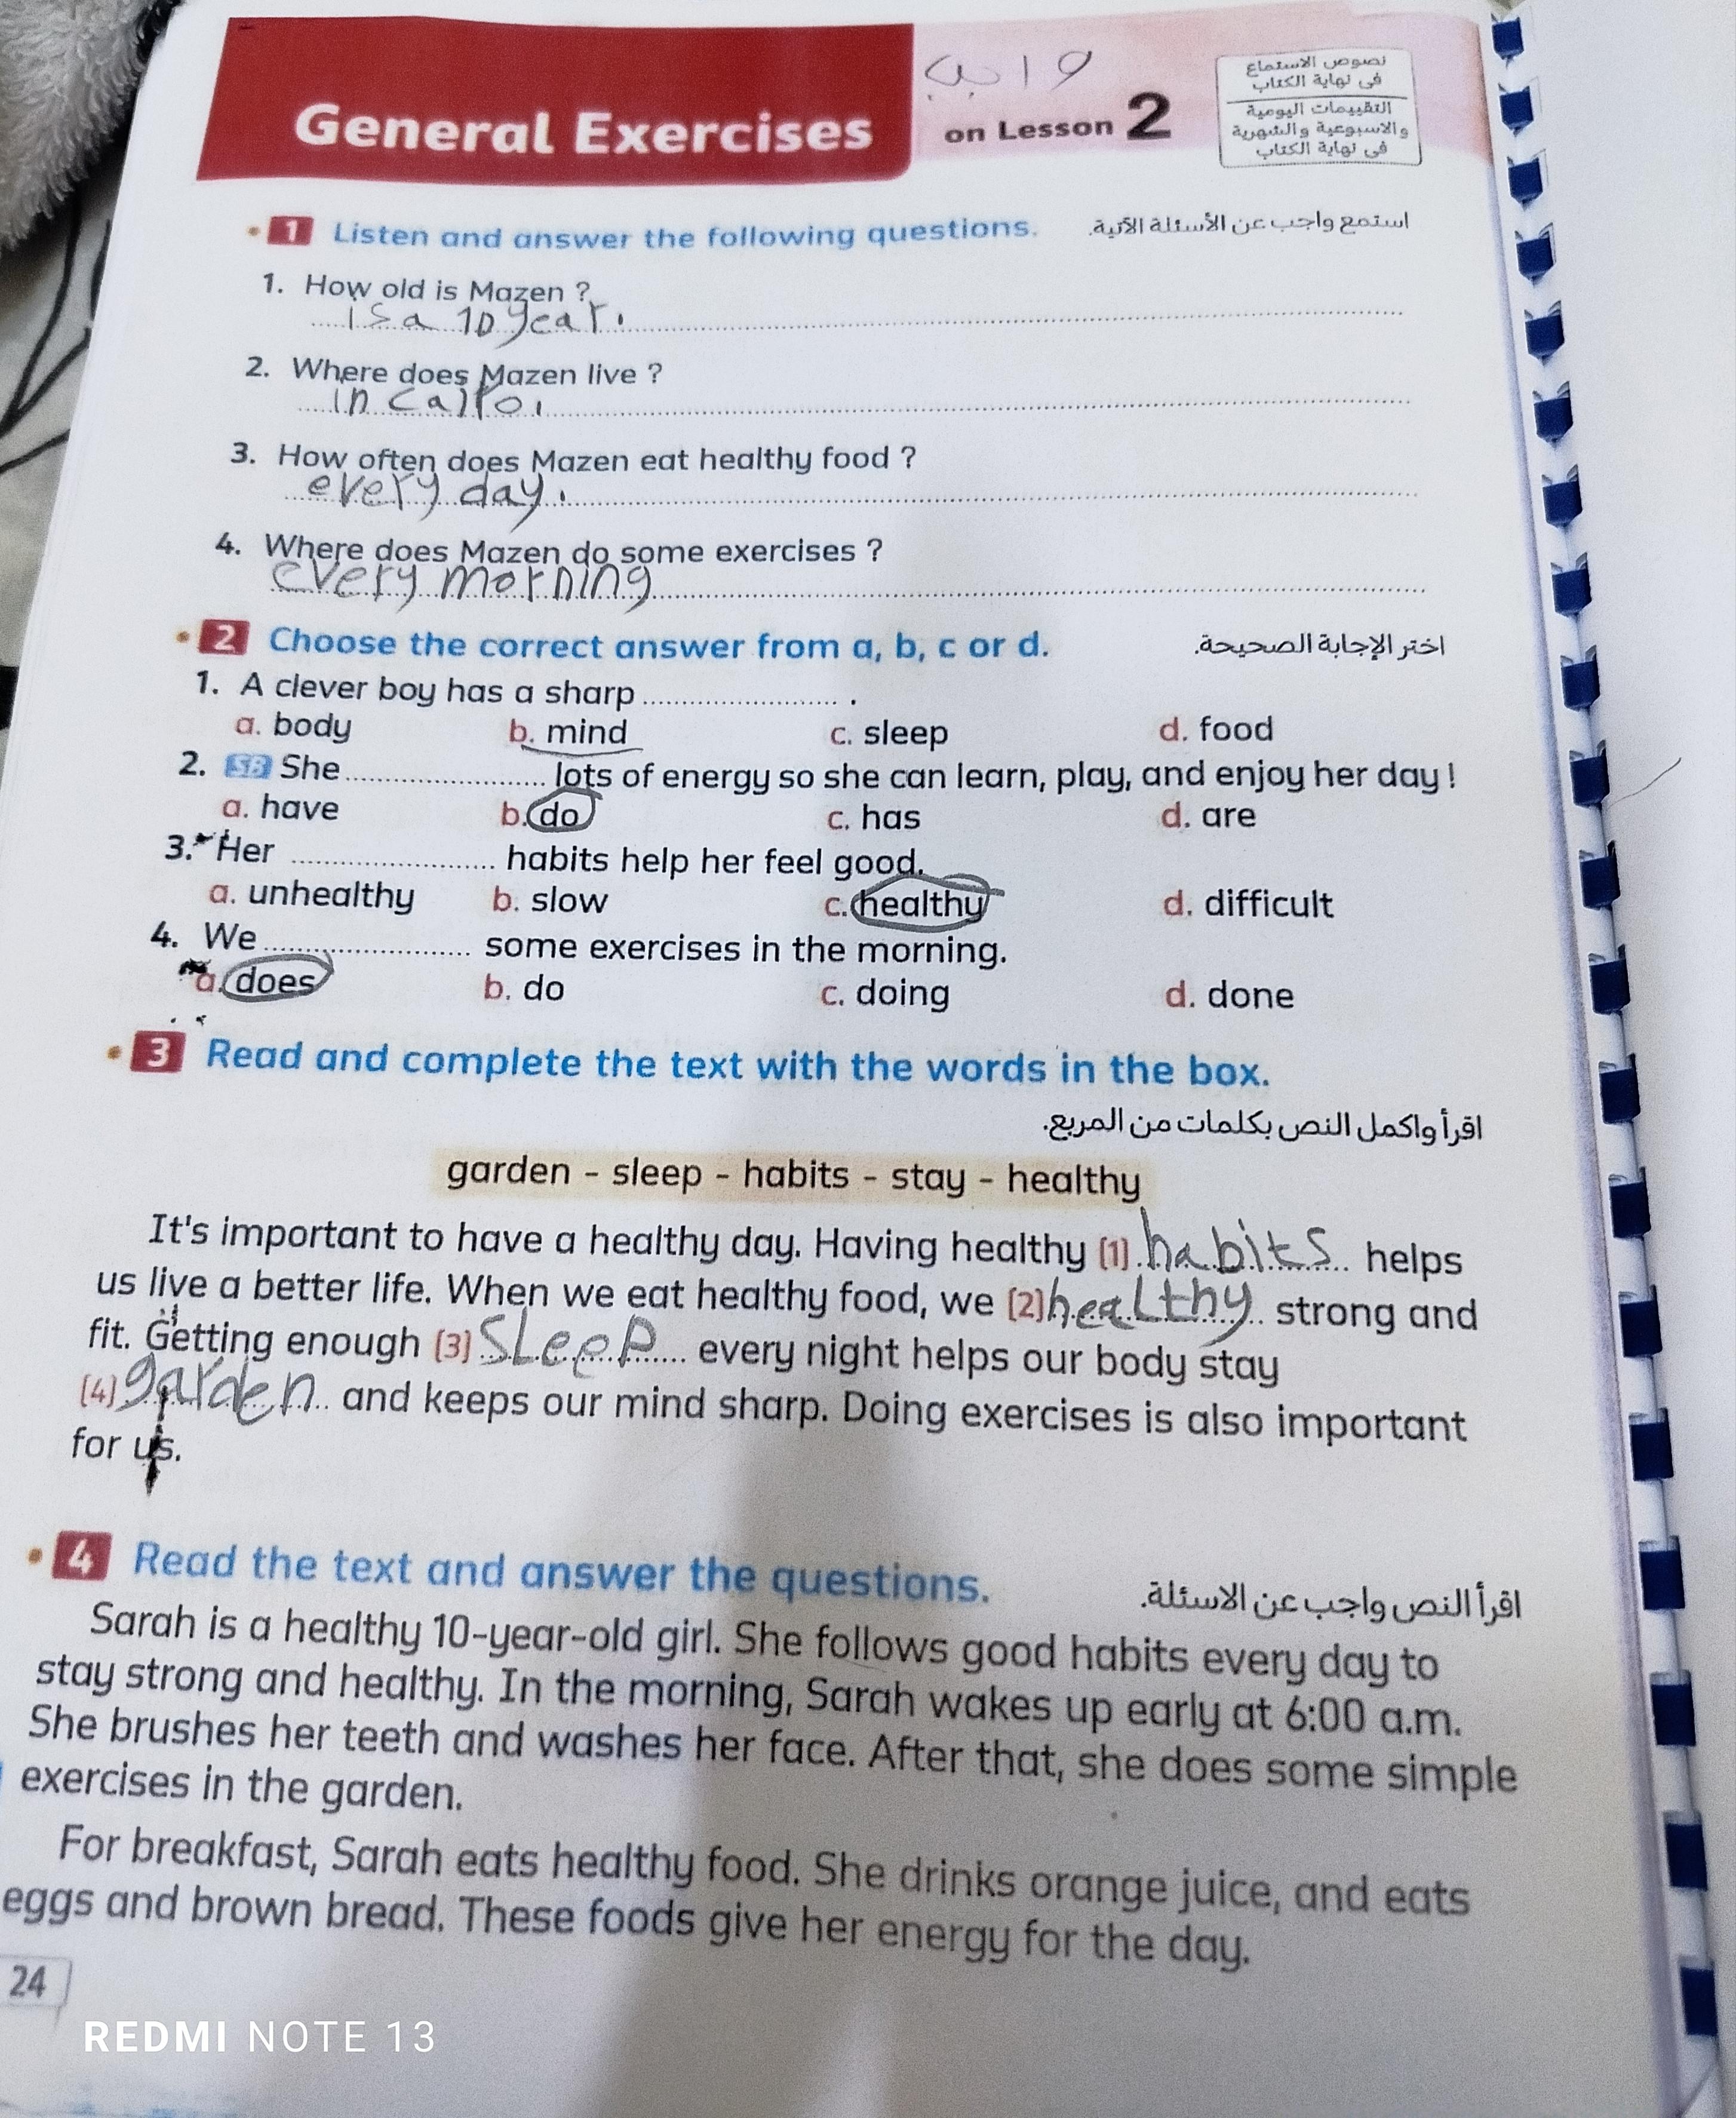 General Exercises on Lesson 2
واجب
نصوص الاستماع
فى نهاية الكتاب
التقييمات اليومية
والاسبوعية والشهرية
فى نهاية الكتاب
1 Listen and answer the following questions. استمع واجب عن الأسئلة الآتية.
1. How old is Mazen ?
is a 10 year.
2. Where does Mazen live ?
in cairo.
3. How often does Mazen eat healthy food ?
every day.
4. Where does Mazen do some exercises ?
every morning
2 Choose the correct answer from a, b, c or d. اختر الإجابة الصحيحة.
1. A clever boy has a sharp .................... .
a. body b. mind c. sleep d. food
2. SB She .................... lots of energy so she can learn, play, and enjoy her day !
a. have b. do c. has d. are
3. Her .................... habits help her feel good.
a. unhealthy b. slow c. healthy d. difficult
4. We .................... some exercises in the morning.
a. does b. do c. doing d. done
3 Read and complete the text with the words in the box.
اقرأ واكمل النص بكلمات من المربع.
garden - sleep - habits - stay - healthy
It's important to have a healthy day. Having healthy (1) habits helps
us live a better life. When we eat healthy food, we (2) healthy strong and
fit. Getting enough (3) sleep every night helps our body stay
(4) garden and keeps our mind sharp. Doing exercises is also important
for us.
4 Read the text and answer the questions. اقرأ النص واجب عن الاسئلة.
Sarah is a healthy 10-year-old girl. She follows good habits every day to
stay strong and healthy. In the morning, Sarah wakes up early at 6:00 a.m.
She brushes her teeth and washes her face. After that, she does some simple
exercises in the garden.
For breakfast, Sarah eats healthy food. She drinks orange juice, and eats
eggs and brown bread. These foods give her energy for the day.
24
REDMI NOTE 13